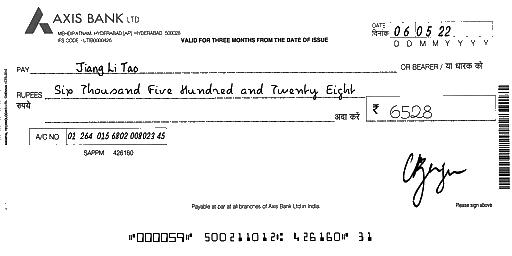 AXIS BANK LTD
MEHDIPATNAM, HYDERABAD [AP] HYDERABAD 500028
IFS CODE - UTIB0000426
VALID FOR THREE MONTHS FROM THE DATE OF ISSUE
DATE
दिनांक 06 05 22
D D M M Y Y Y Y
PAY Jiang Li Tao OR BEARER / या धारक को
RUPEES Six Thousand Five Hundred and Twenty Eight
रुपये अदा करें ₹ 6528
A/C NO 01 264 015 6802 008023 45
SAPPM 426160
Payable at par at all branches of Axis Bank Ltd in India.
Please sign above
"000059" 500211012: 426160" 31